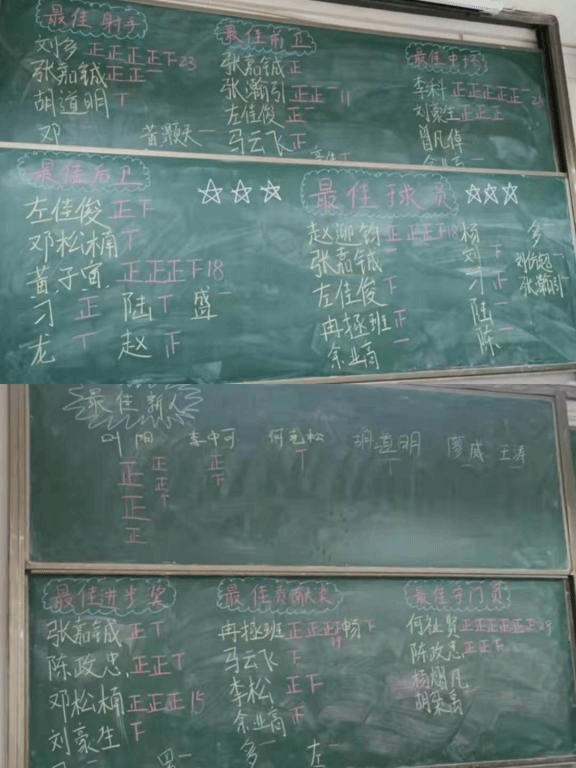 最佳射手
刘多 正正正正下23
张嘉铖 正正一
胡道明 丅
邓
黄灏天 一
最佳前卫
张嘉铖 正
张瀚引 正正一 11
左佳俊 正
马云飞 正
最佳中场
李科 正正正正正一
刘豪生 正正正
最佳后卫
左佳俊 正下
邓松楠 丅
黄子宜 正正正下18
刁 正 陆 丅 盛 一
龙 丅 赵 正
☆☆☆ 最佳球员 ☆☆☆
赵迎钧 正正正下18
张嘉铖 一
左佳俊 下
冉拯班 正
余业商 一
杨 多 一
刘 下
刁 正
陆 一
陈 一
张瀚引
最佳新人
叶阳 李中可 何克松 胡道明 廖威 王涛
正 正 正 丅
正 正 下
正 丅
正
最佳进步奖
张嘉铖 正丅
陈政忠 正正丅
邓松楠 正正正15
刘豪生 下
最佳贡献奖
冉拯班 正正正 畅 下
马云飞 下
李松 正下
余业商 正
多 一 左 一
最佳守门员
何祉贤 正正正正正正29
陈政忠 正正下